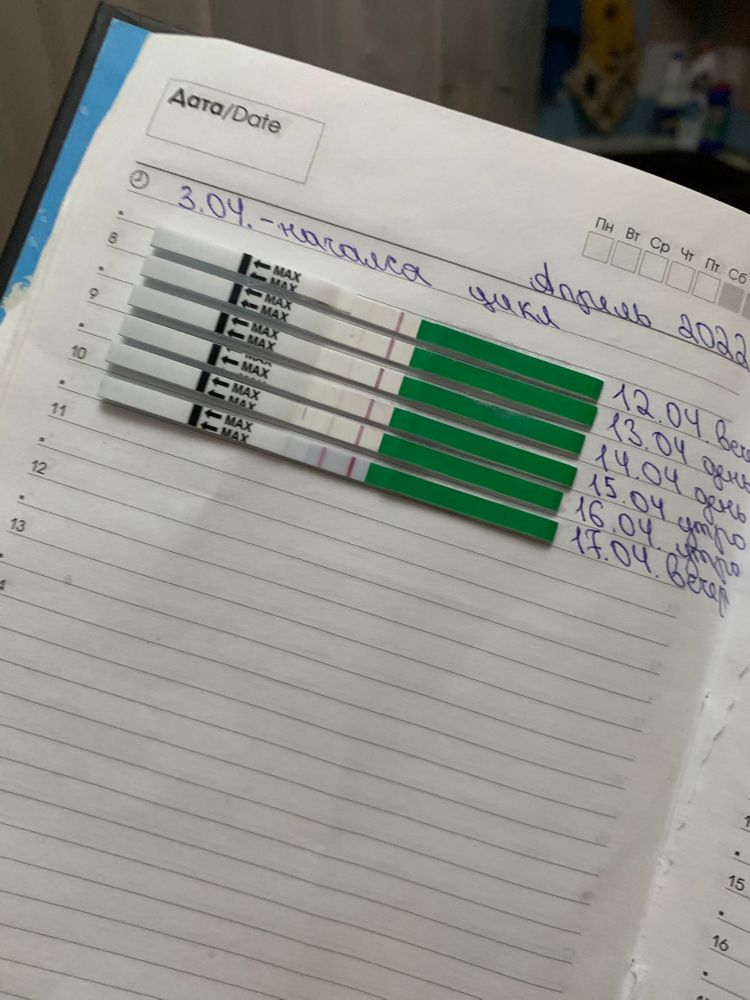 Дата/Date
Пн Вт Ср Чт Пт Сб
3.04. - начался цикл
Апрель 2022
8
9
10
11
12
13
← MAX
← MAX
← MAX
← MAX
← MAX
← MAX
← MAX
← MAX
← MAX
← MAX
12.04. вече
13.04 день
14.04 день
15.04 утро
16.04. утро
17.04. вечер
15
16